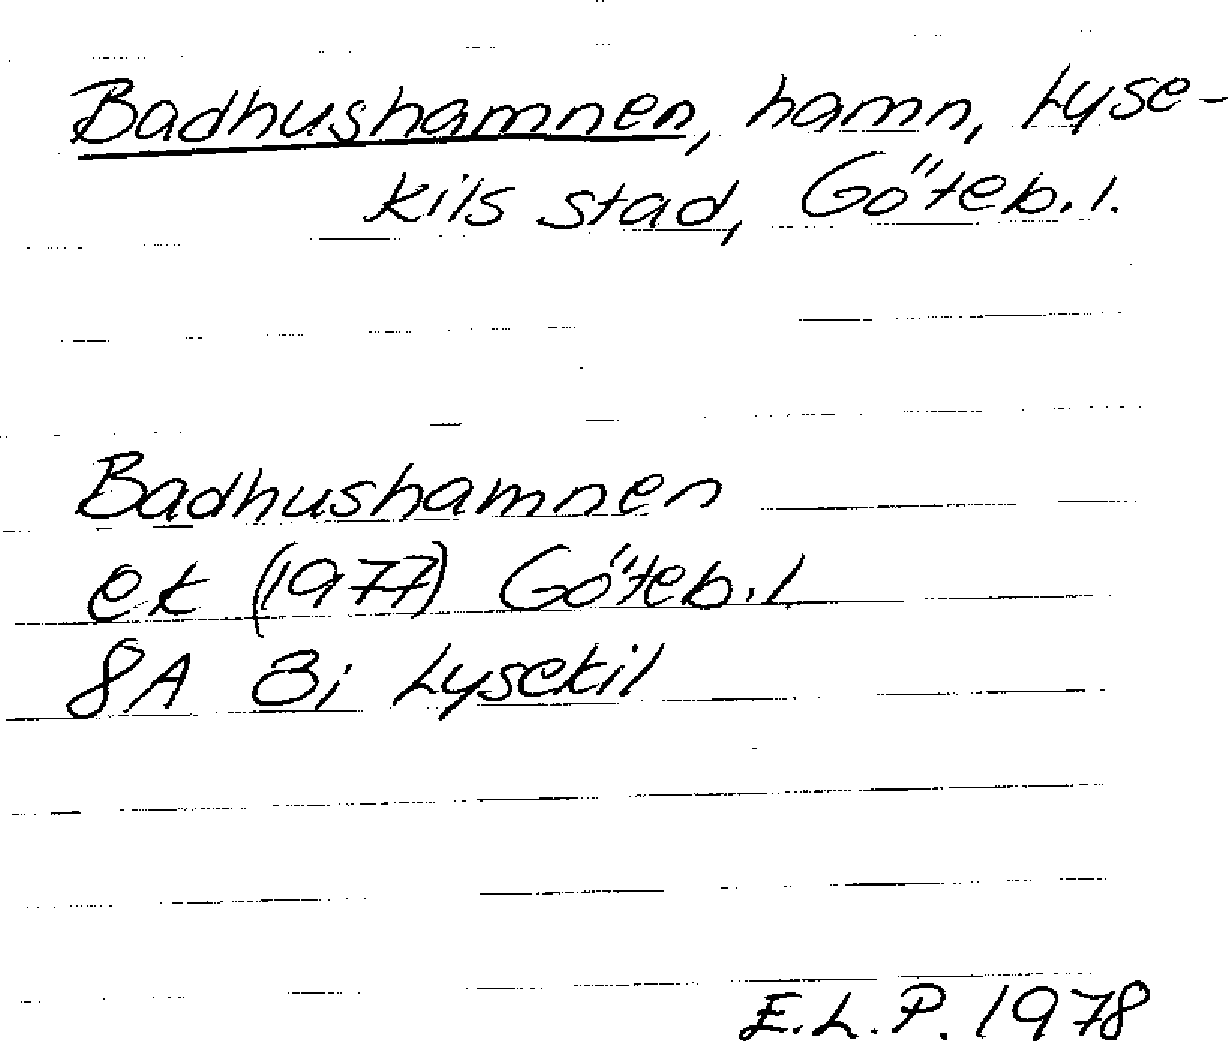 Badhushamnen, hamn, Lyse-
kils stad, Göteb. l.
Badhushamnen
ek (1977) Göteb. L
8A 3i Lysekil
E.L.P. 1978